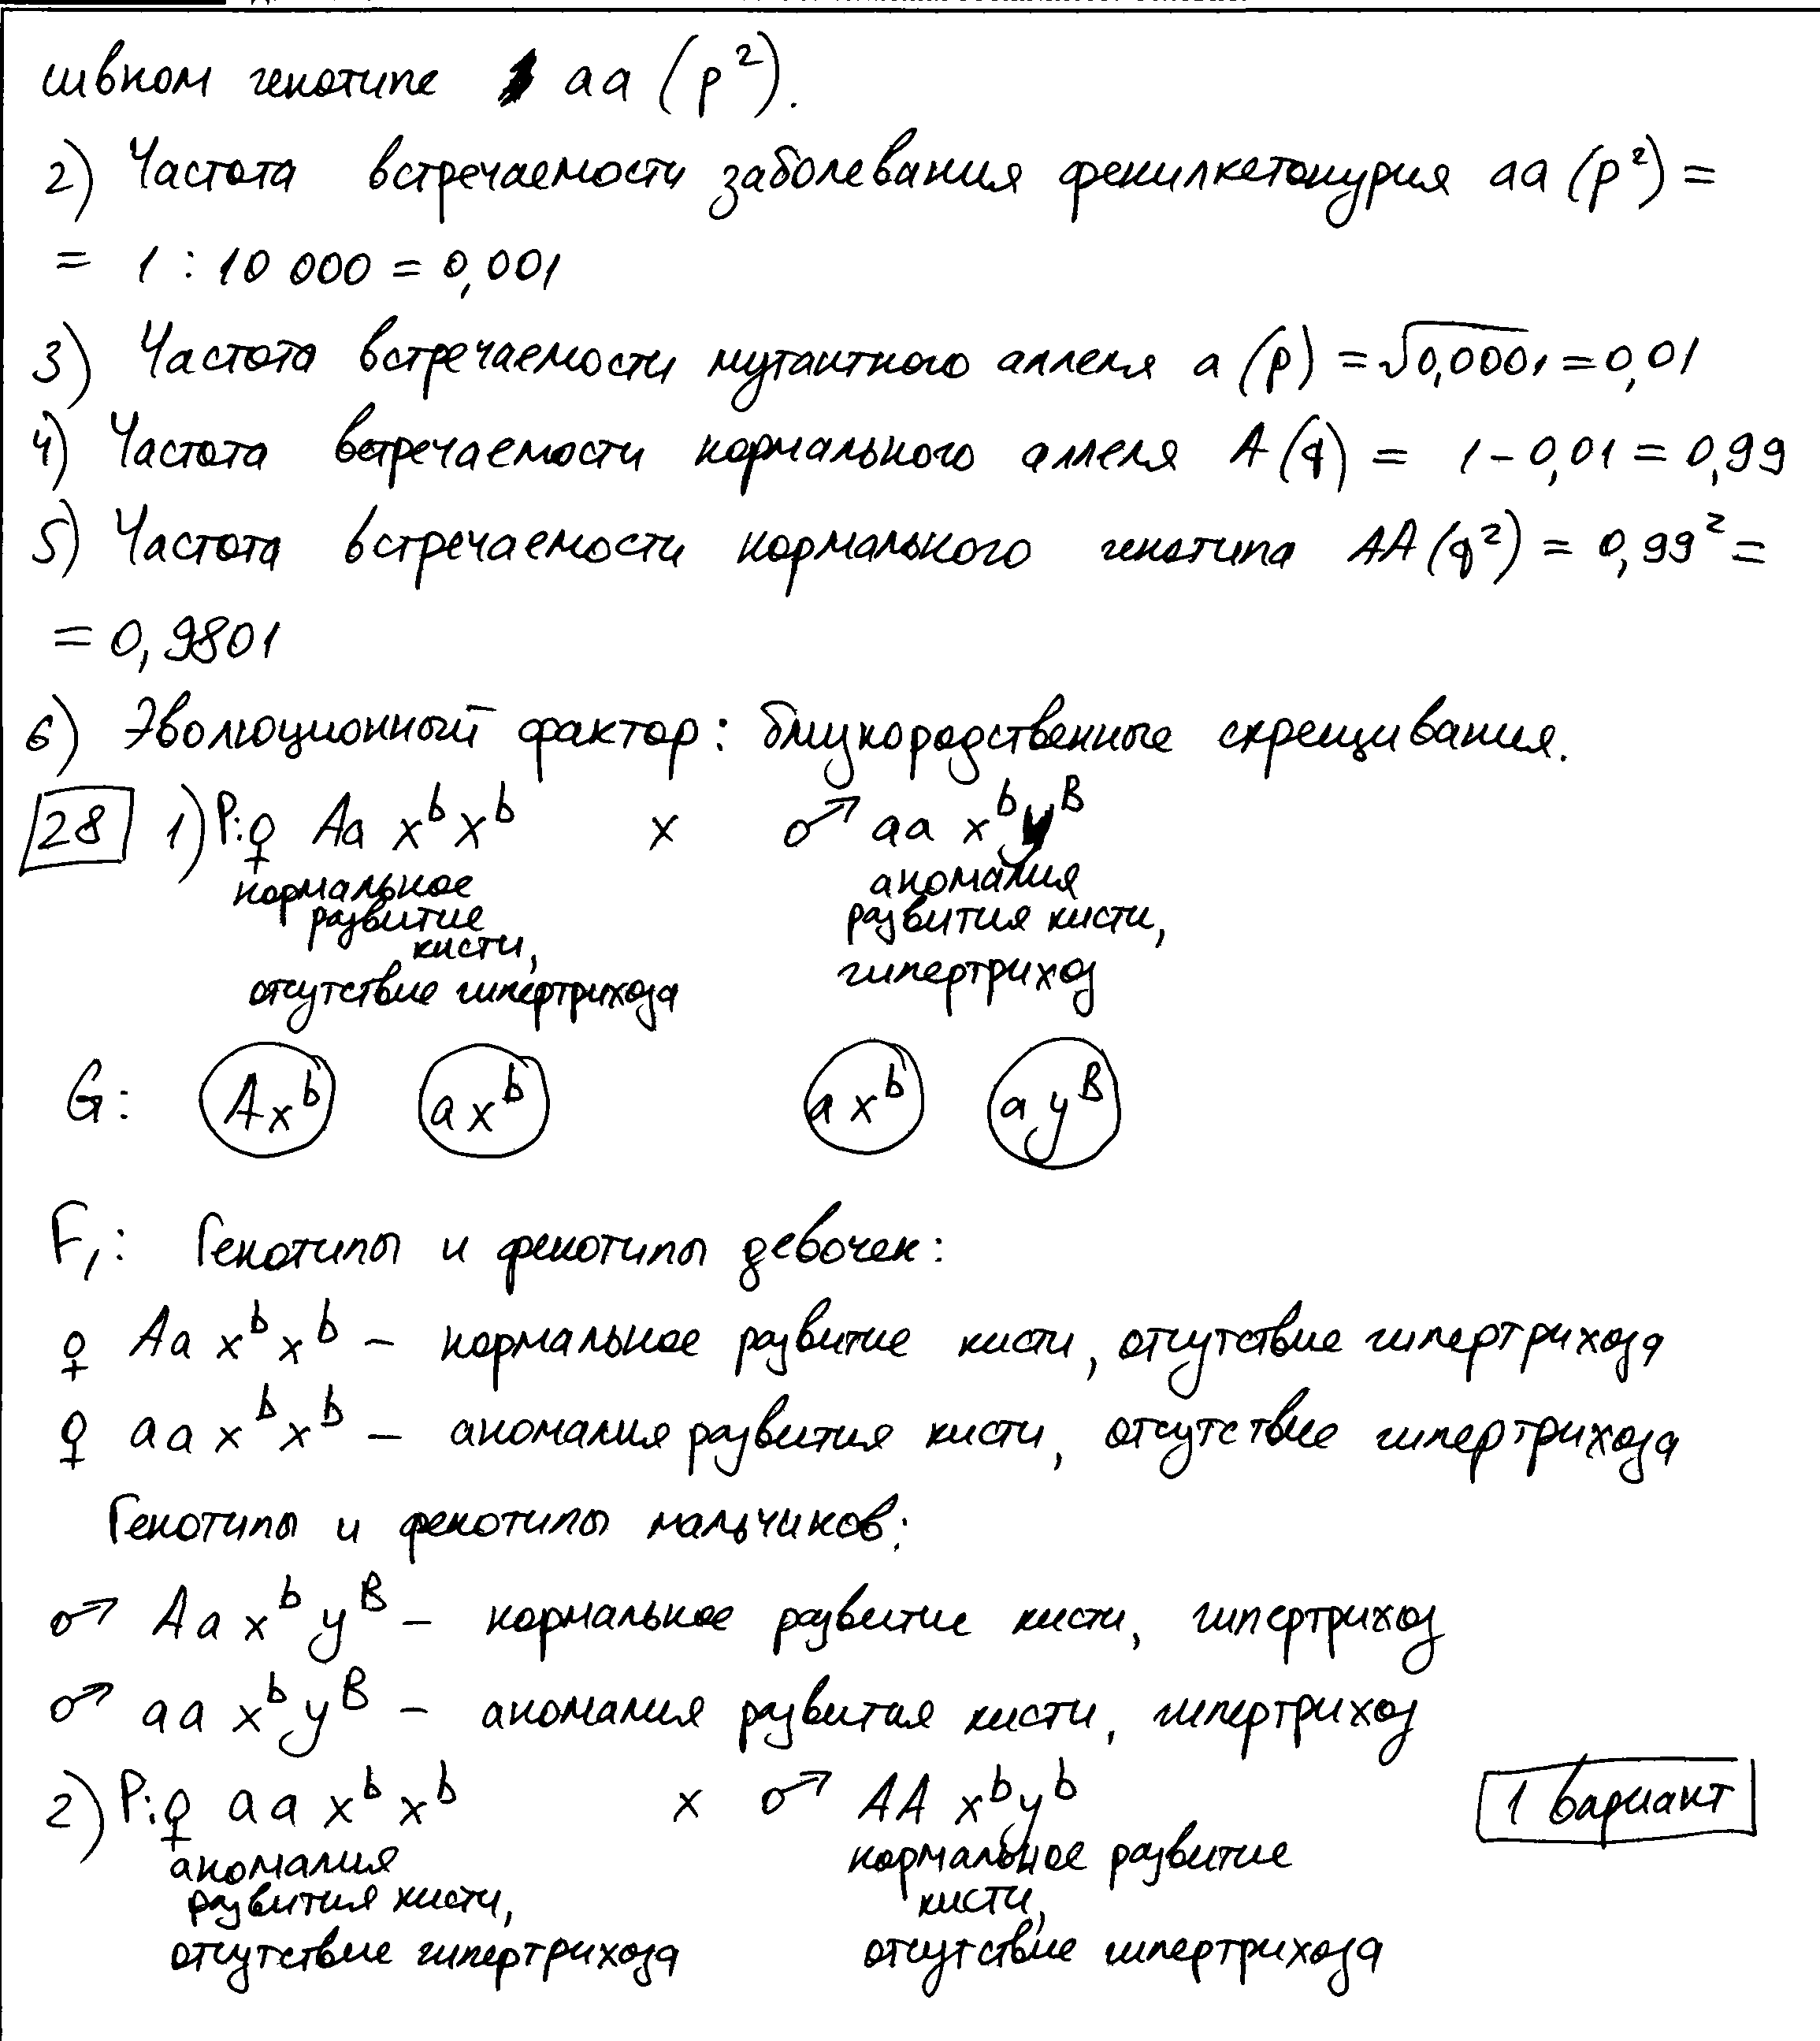 шивном генотипе aa (p²).
2) Частота встречаемости заболевания фенилкетонурия aa (p²) =
= 1 : 10 000 = 0,001
3) Частота встречаемости мутантного аллеля a (p) = √0,0001 = 0,01
4) Частота встречаемости нормального аллеля A (q) = 1 - 0,01 = 0,99
5) Частота встречаемости нормального генотипа AA (q²) = 0,99² =
= 0,9801
6) Эволюционный фактор: близкородственные скрещивания.
28 1) P: ♀ Aa xᵇxᵇ x ♂ aa xᵇyᴮ
нормальное развитие кисти, отсутствие гипертрихоза
аномалия развития кисти, гипертрихоз
G: Axᵇ axᵇ axᵇ ayᴮ
F₁: Генотипы и фенотипы девочек:
♀ Aa xᵇxᵇ – нормальное развитие кисти, отсутствие гипертрихоза
♀ aa xᵇxᵇ – аномалия развития кисти, отсутствие гипертрихоза
Генотипы и фенотипы мальчиков:
♂ Aa xᵇyᴮ – нормальное развитие кисти, гипертрихоз
♂ aa xᵇyᴮ – аномалия развития кисти, гипертрихоз
2) P: ♀ aa xᵇxᵇ x ♂ AA xᵇyᵇ 1 вариант
аномалия развития кисти, отсутствие гипертрихоза
нормальное развитие кисти, отсутствие гипертрихоза